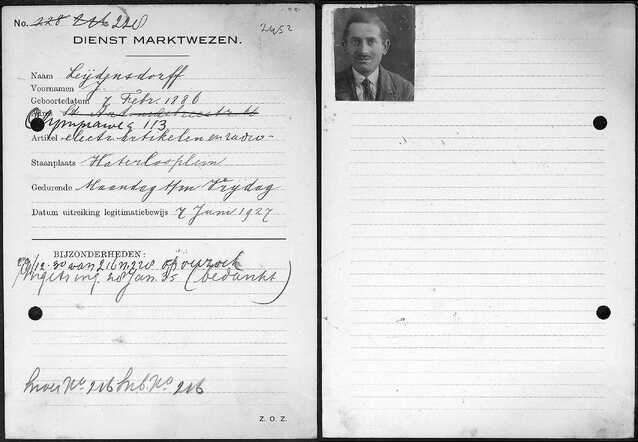 No. 228 216 228
2452
DIENST MARKTWEZEN.
Naam Leijdensdorff
Voornamen
Geboortedatum 7 Febr. 1886
Adres St. Antoniebreestr.
Olympiaweg 113
Artikel electr. artikelen en radio
Staanplaats Waterlooplein
Gedurende Maandag t/m Vrijdag
Datum uitreiking legitimatiebewijs 7 Juni 1927
BIJZONDERHEDEN:
/12.30 van 216 n. 228 op verzoek
Ingetr. ing. 28 Jan. 35 (bedankt)
Inver No 216 Inb. No 216
Z. O. Z.